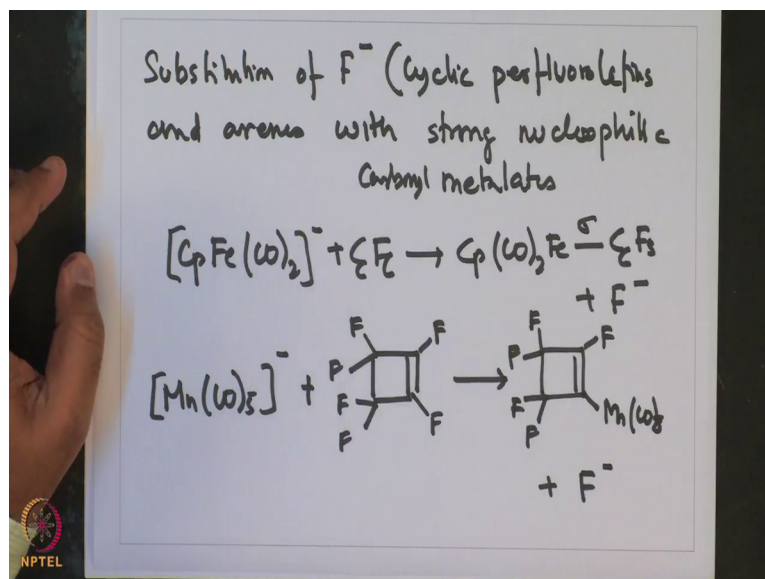 Substitution of F⁻ (Cyclic perfluorolefins
and arenes with strong nucleophilic
Carbonyl metalates
[CpFe(CO)₂]⁻ + C₆F₆ → Cp(CO)₂Fe –σ– C₆F₅
+ F⁻
[Mn(CO)₅]⁻ + F F F F F F → F F F F F Mn(CO)₅
+ F⁻
NPTEL